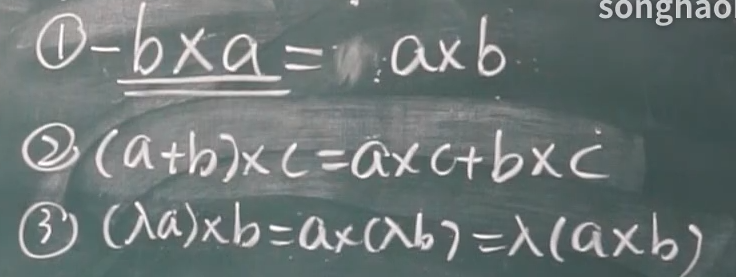 songhao
① -b×a = a×b
② (a+b)×c=a×c+b×c
③ (λa)×b=a×(λb)=λ(a×b)